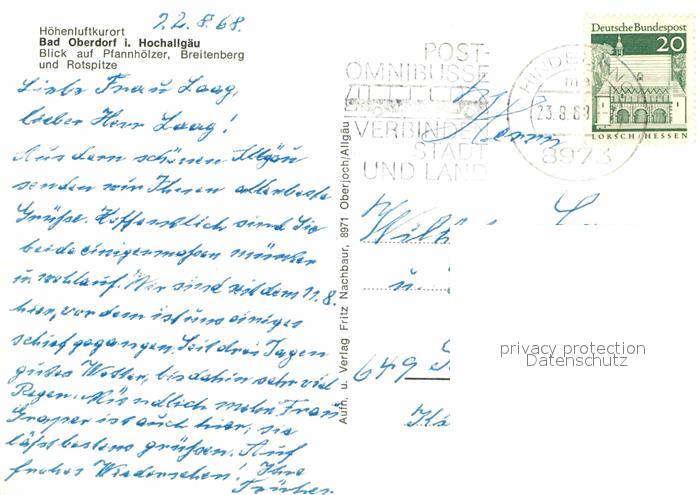 22.8.68.
Höhenluftkurort
Bad Oberdorf i. Hochallgäu
Blick auf Pfannhölzer, Breitenberg
und Rotspitze
Liebe Frau Laag,
lieber Herr Laag!
Aus dem schönen Allgäu
senden wir Ihnen allerbeste
Grüße. Hoffentlich sind Sie
beide einigermaßen munter
u. wohlauf. Wir sind seit dem 11.8.
hier, vordem ist uns einiges
schief gegangen. Seit drei Tagen
gutes Wetter, bis dahin sehr viel
Regen. Mündlich mehr. Frau
Graper ist auch hier, sie
läßt bestens grüßen. Auf
frohes Wiedersehen! Ihre
Früher.
Aufn. u. Verlag Fritz Nachbaur, 8971 Oberjoch/Allgäu
POST-
OMNIBUSSE
VERBINDEN
STADT
UND LAND
23.8.68
8973
Deutsche Bundespost
20
LORSCH/HESSEN
Herrn
u.
649
privacy protection
Datenschutz